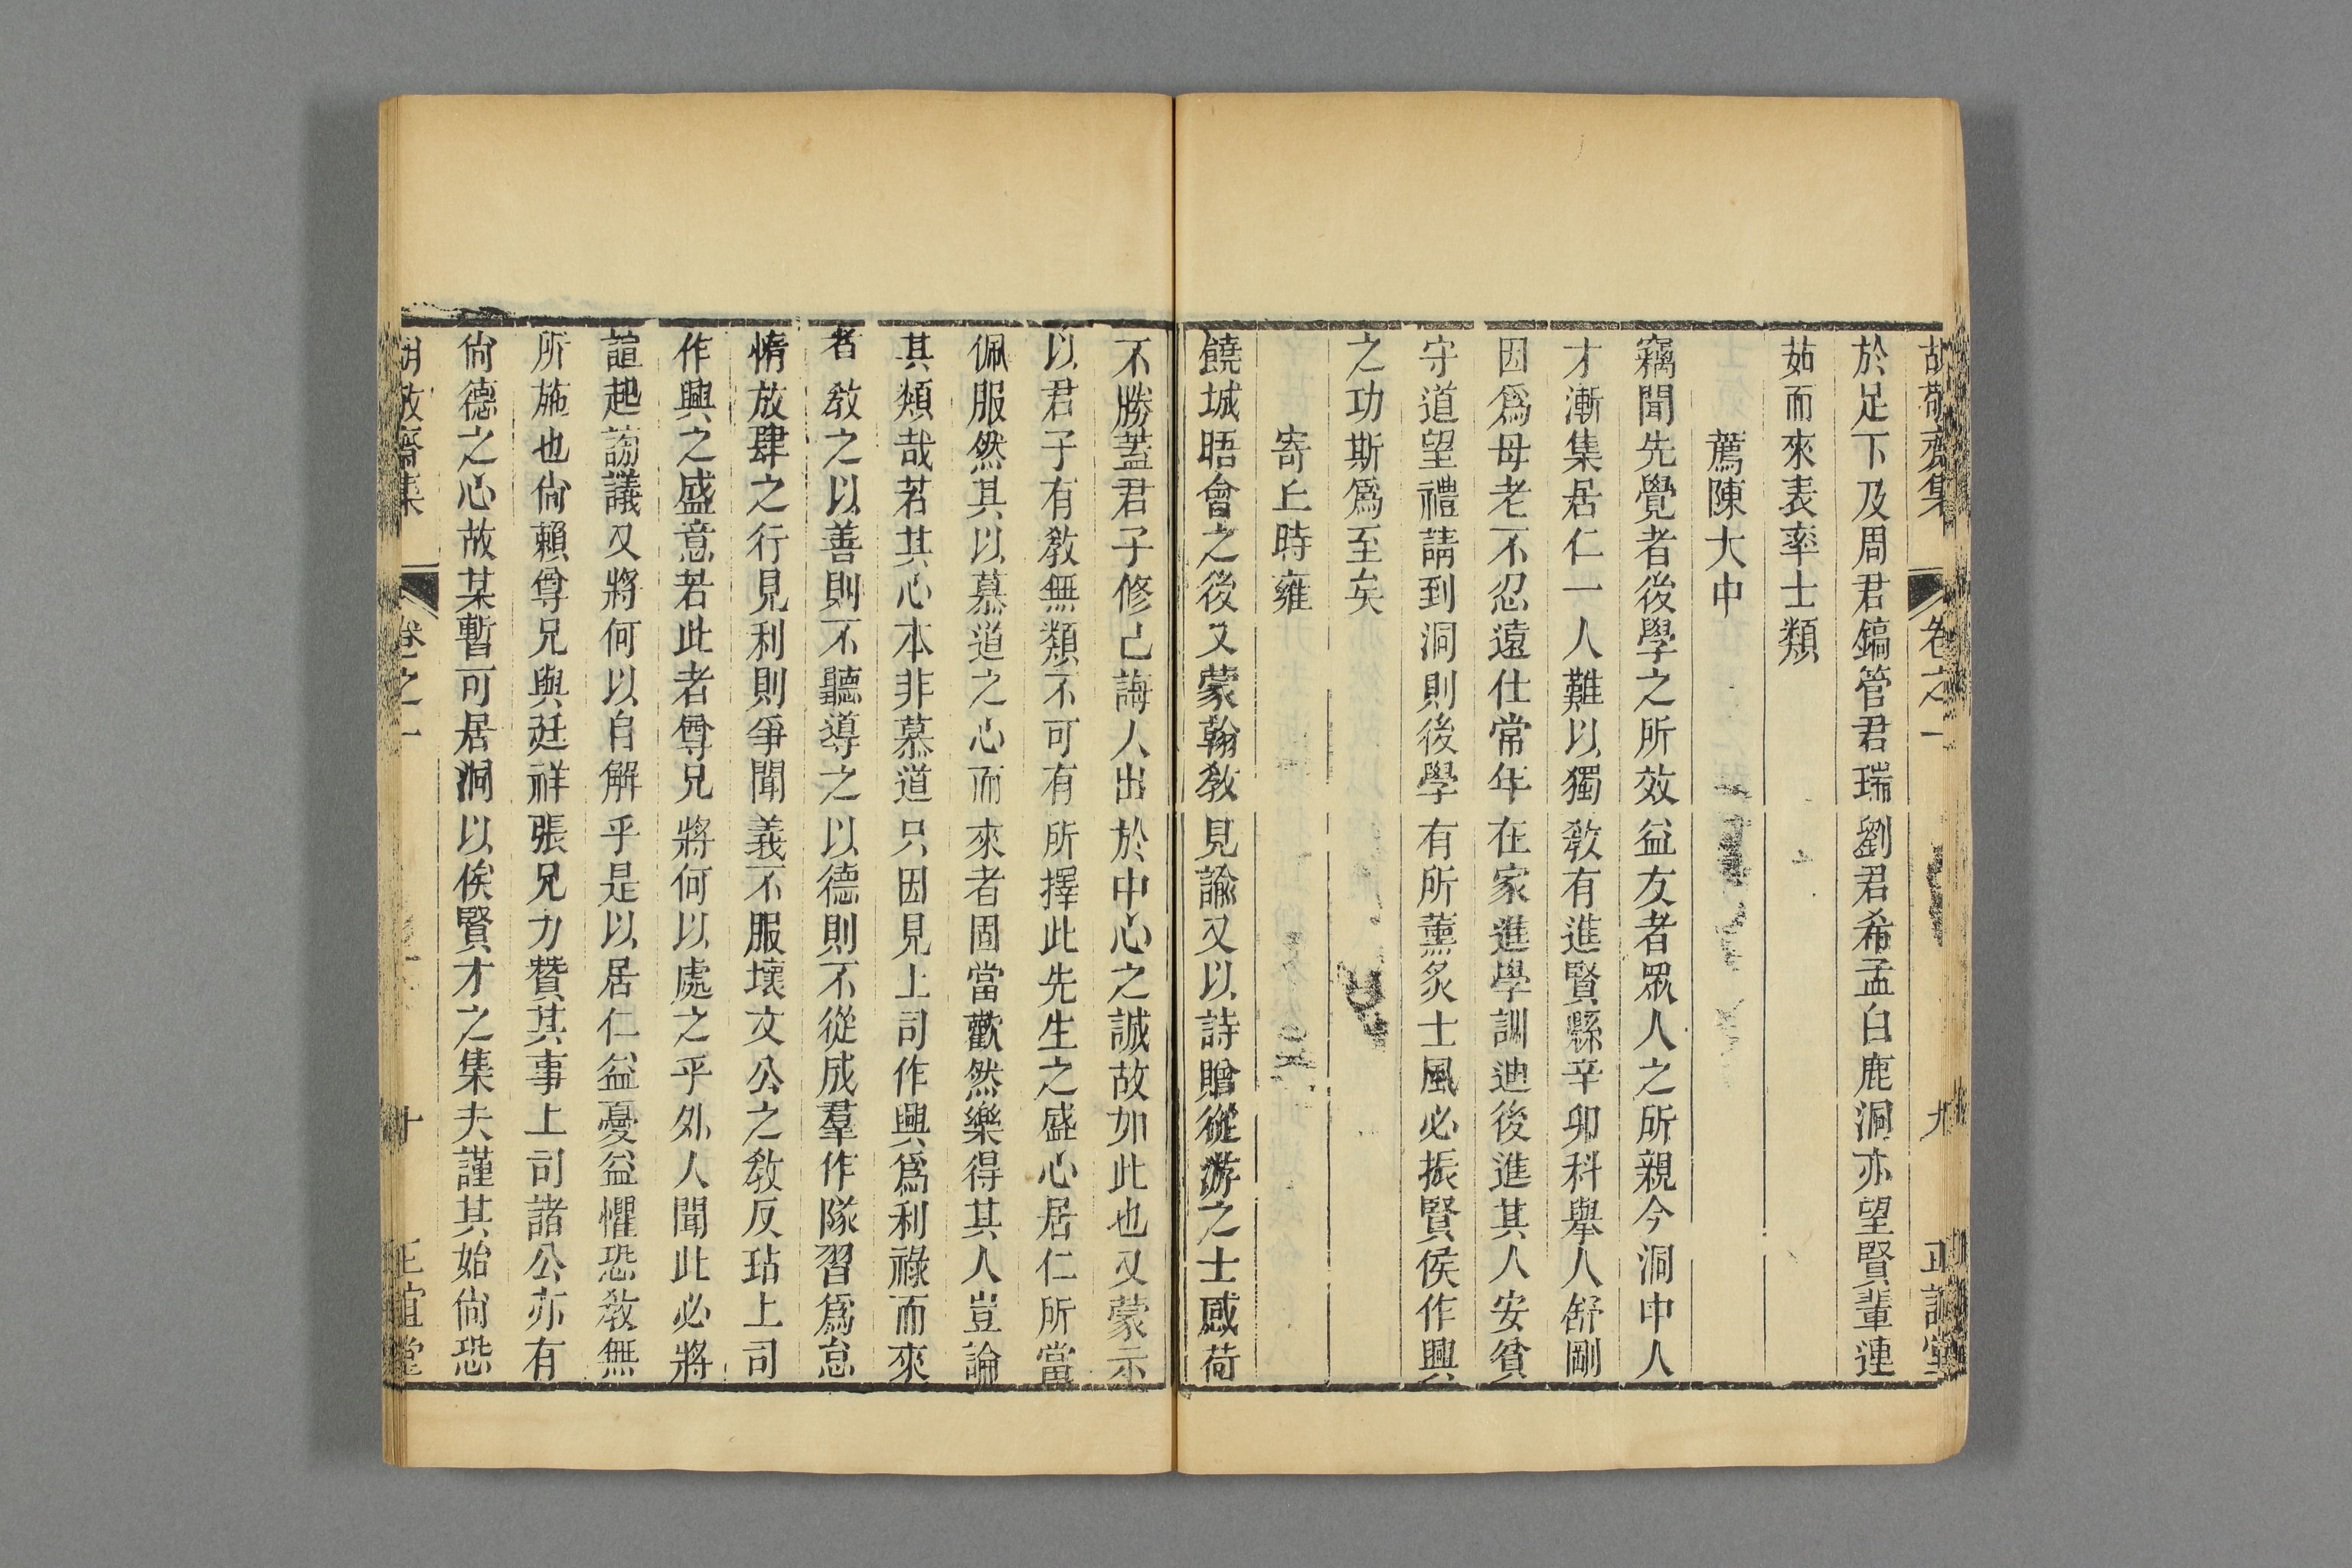 胡敬齋集 卷之一 九 正誼堂
於足下及周君鎬管君瑞劉君希孟白鹿洞亦望賢輩連
茹而來表率士類
薦陳大中
竊聞先覺者後學之所效益友者眾人之所親今洞中人
才漸集居仁一人難以獨教有進賢縣辛卯科舉人舒剛
因爲母老不忍遠仕常年在家進學訓迪後進其人安貧
守道望禮請到洞則後學有所薰炙士風必振賢侯作興
之功斯爲至矣
寄丘時雍
饒城晤會之後又蒙翰教見諭又以詩贈從游之士感荷
不勝蓋君子修己誨人出於中心之誠故如此也又蒙示
以君子有教無類不可有所擇此先生之盛心居仁所當
佩服然其以慕道之心而來者固當歡然樂得其人豈論
其類哉若其心本非慕道只因見上司作興爲利祿而來
者教之以善則不聽導之以德則不從成羣作隊習爲怠
惰放肆之行見利則爭聞義不服壞文公之教反玷上司
作興之盛意若此者尊兄將何以處之乎外人聞此必將
諠起謗議又將何以自解乎是以居仁益憂益懼恐教無
所施也尙賴尊兄與廷祥張兄力贊其事上司諸公亦有
尙德之心故某暫可居洞以俟賢才之集夫謹其始尙恐
胡敬齋集 卷之一 十 正誼堂